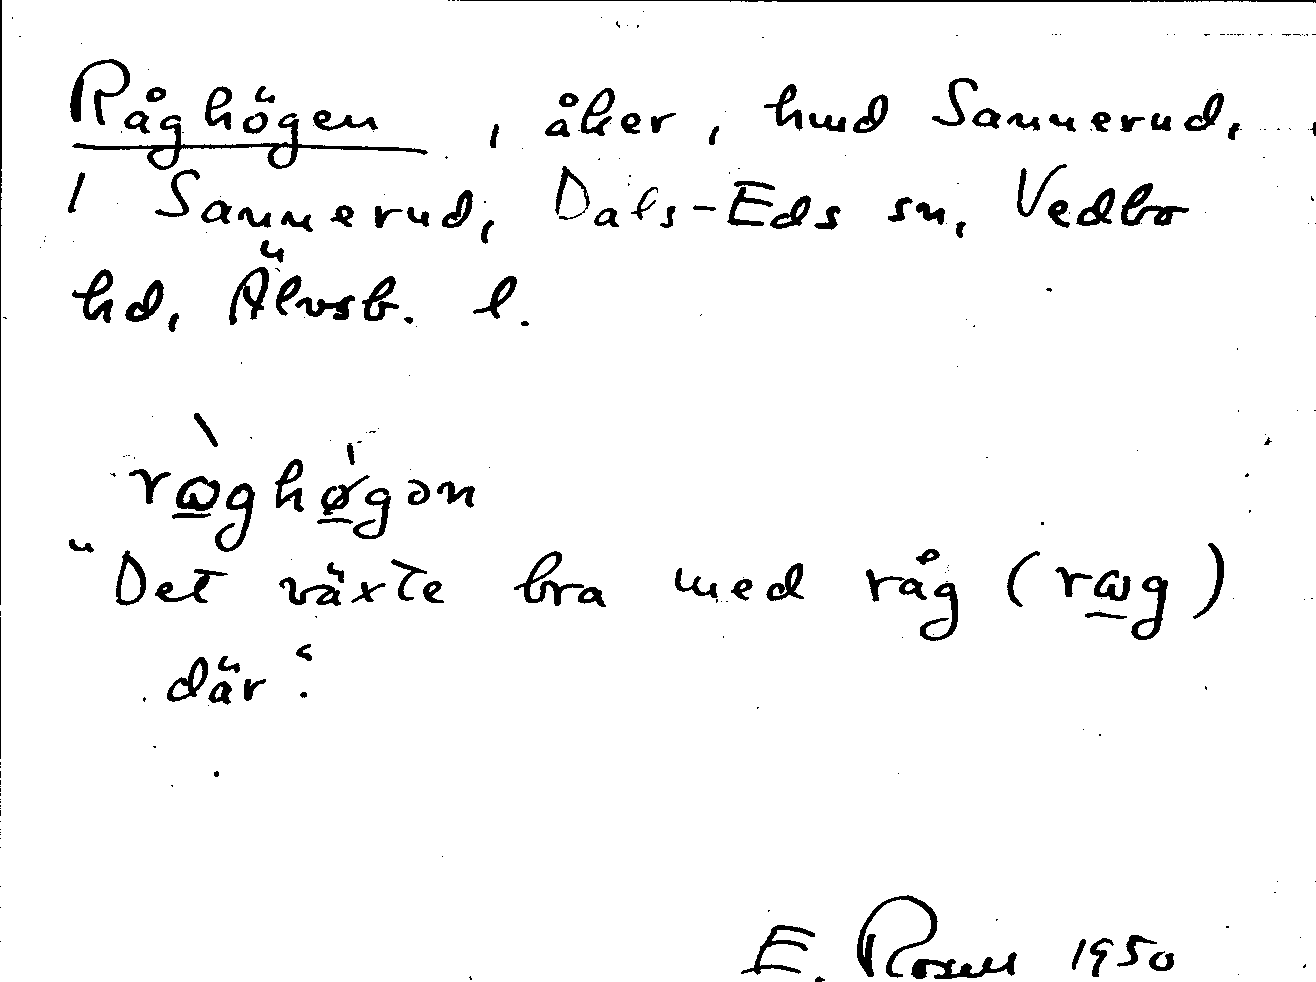 Råghögen, åker, hmd Sannerud,
1 Sannerud, Dals-Eds sn, Vedbo
hd, Älvsb. l.
rɷ̀ghǿgən
"Det växte bra med råg (rɷg)
där".
E. Rosell 1950